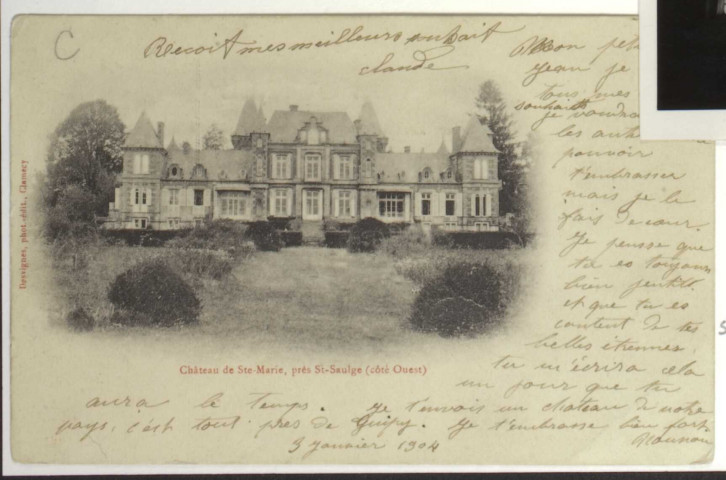 C
Recoit mes meilleurs souhait
claude
Mon
Jean je
tous mes
souhaits
je voudra
les
pouvoir
t'embrasser
mais je le
fais de cœur.
Je pensse que
tu es toujours
bien gentil
et que tu es
content de tes
belles étrennes,
tu m'écrira cela
un jour que tu
aura le temps. Je t'envois un château de notre
pays, c'est tout près de Guipy. Je t'embrasse bien fort
3 Janvier 1904
Dessignes, phot.-édit., Clamecy
Château de Ste-Marie, près St-Saulge (côté Ouest)